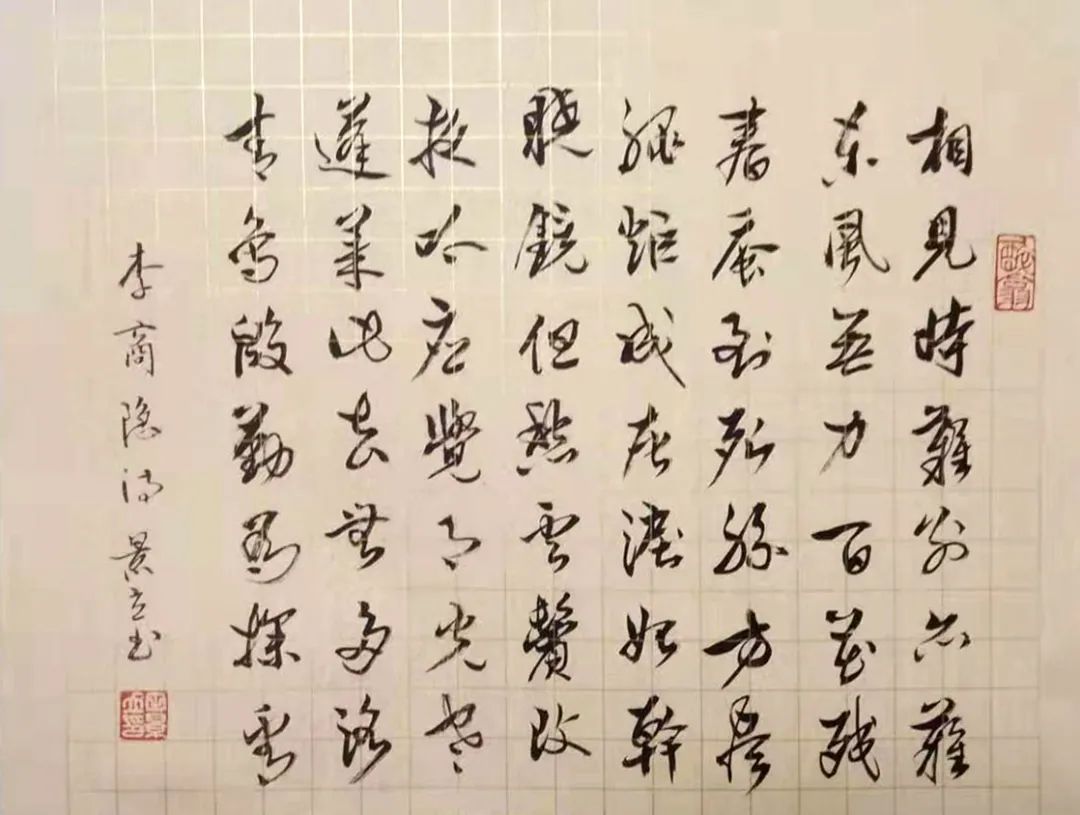 相見時難別亦難
東風無力百花殘
春蚕到死絲方盡
蠟炬成灰淚始幹
曉鏡但愁雲鬢改
夜吟應覺月光寒
蓬萊此去無多路
青鳥殷勤為探看
李商隱詩景立书